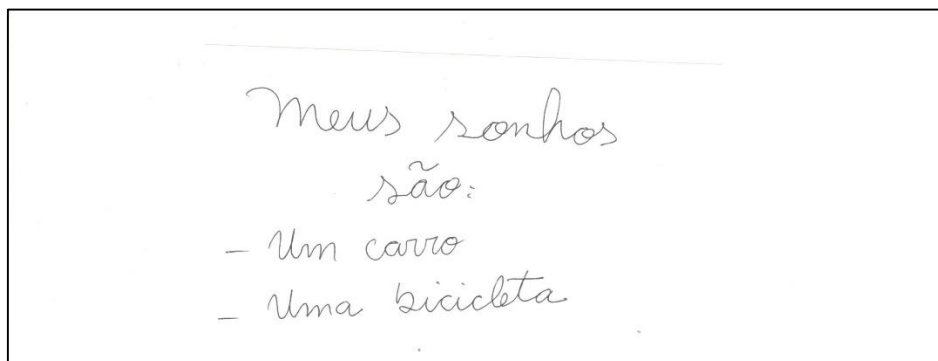 Meus sonhos
são:
- Um carro
- Uma bicicleta